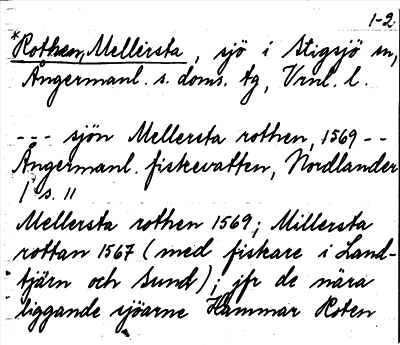 1-2
*Rothen, Mellersta, sjö i Stigsjö sn,
Ångermanl. s. doms. tg, Vrnl. l.
--- sjön Mellersta rothen, 1569 --
Ångermanl. fiskevatten, Nordlander
1 s. 11
Mellersta rothen 1569; Millersta
rottan 1567 (med fiskare i Land-
tjärn och Sund); jfr de nära
liggande sjöarne Hammar Roten